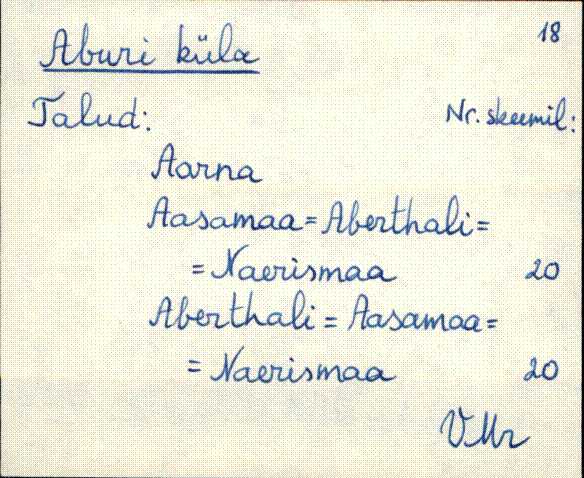 18
Aburi küla
Talud: Nr. skeemil:
Aarna
Aasamaa = Aberthali =
= Naerismaa 20
Aberthali = Aasamaa =
= Naerismaa 20
VMr